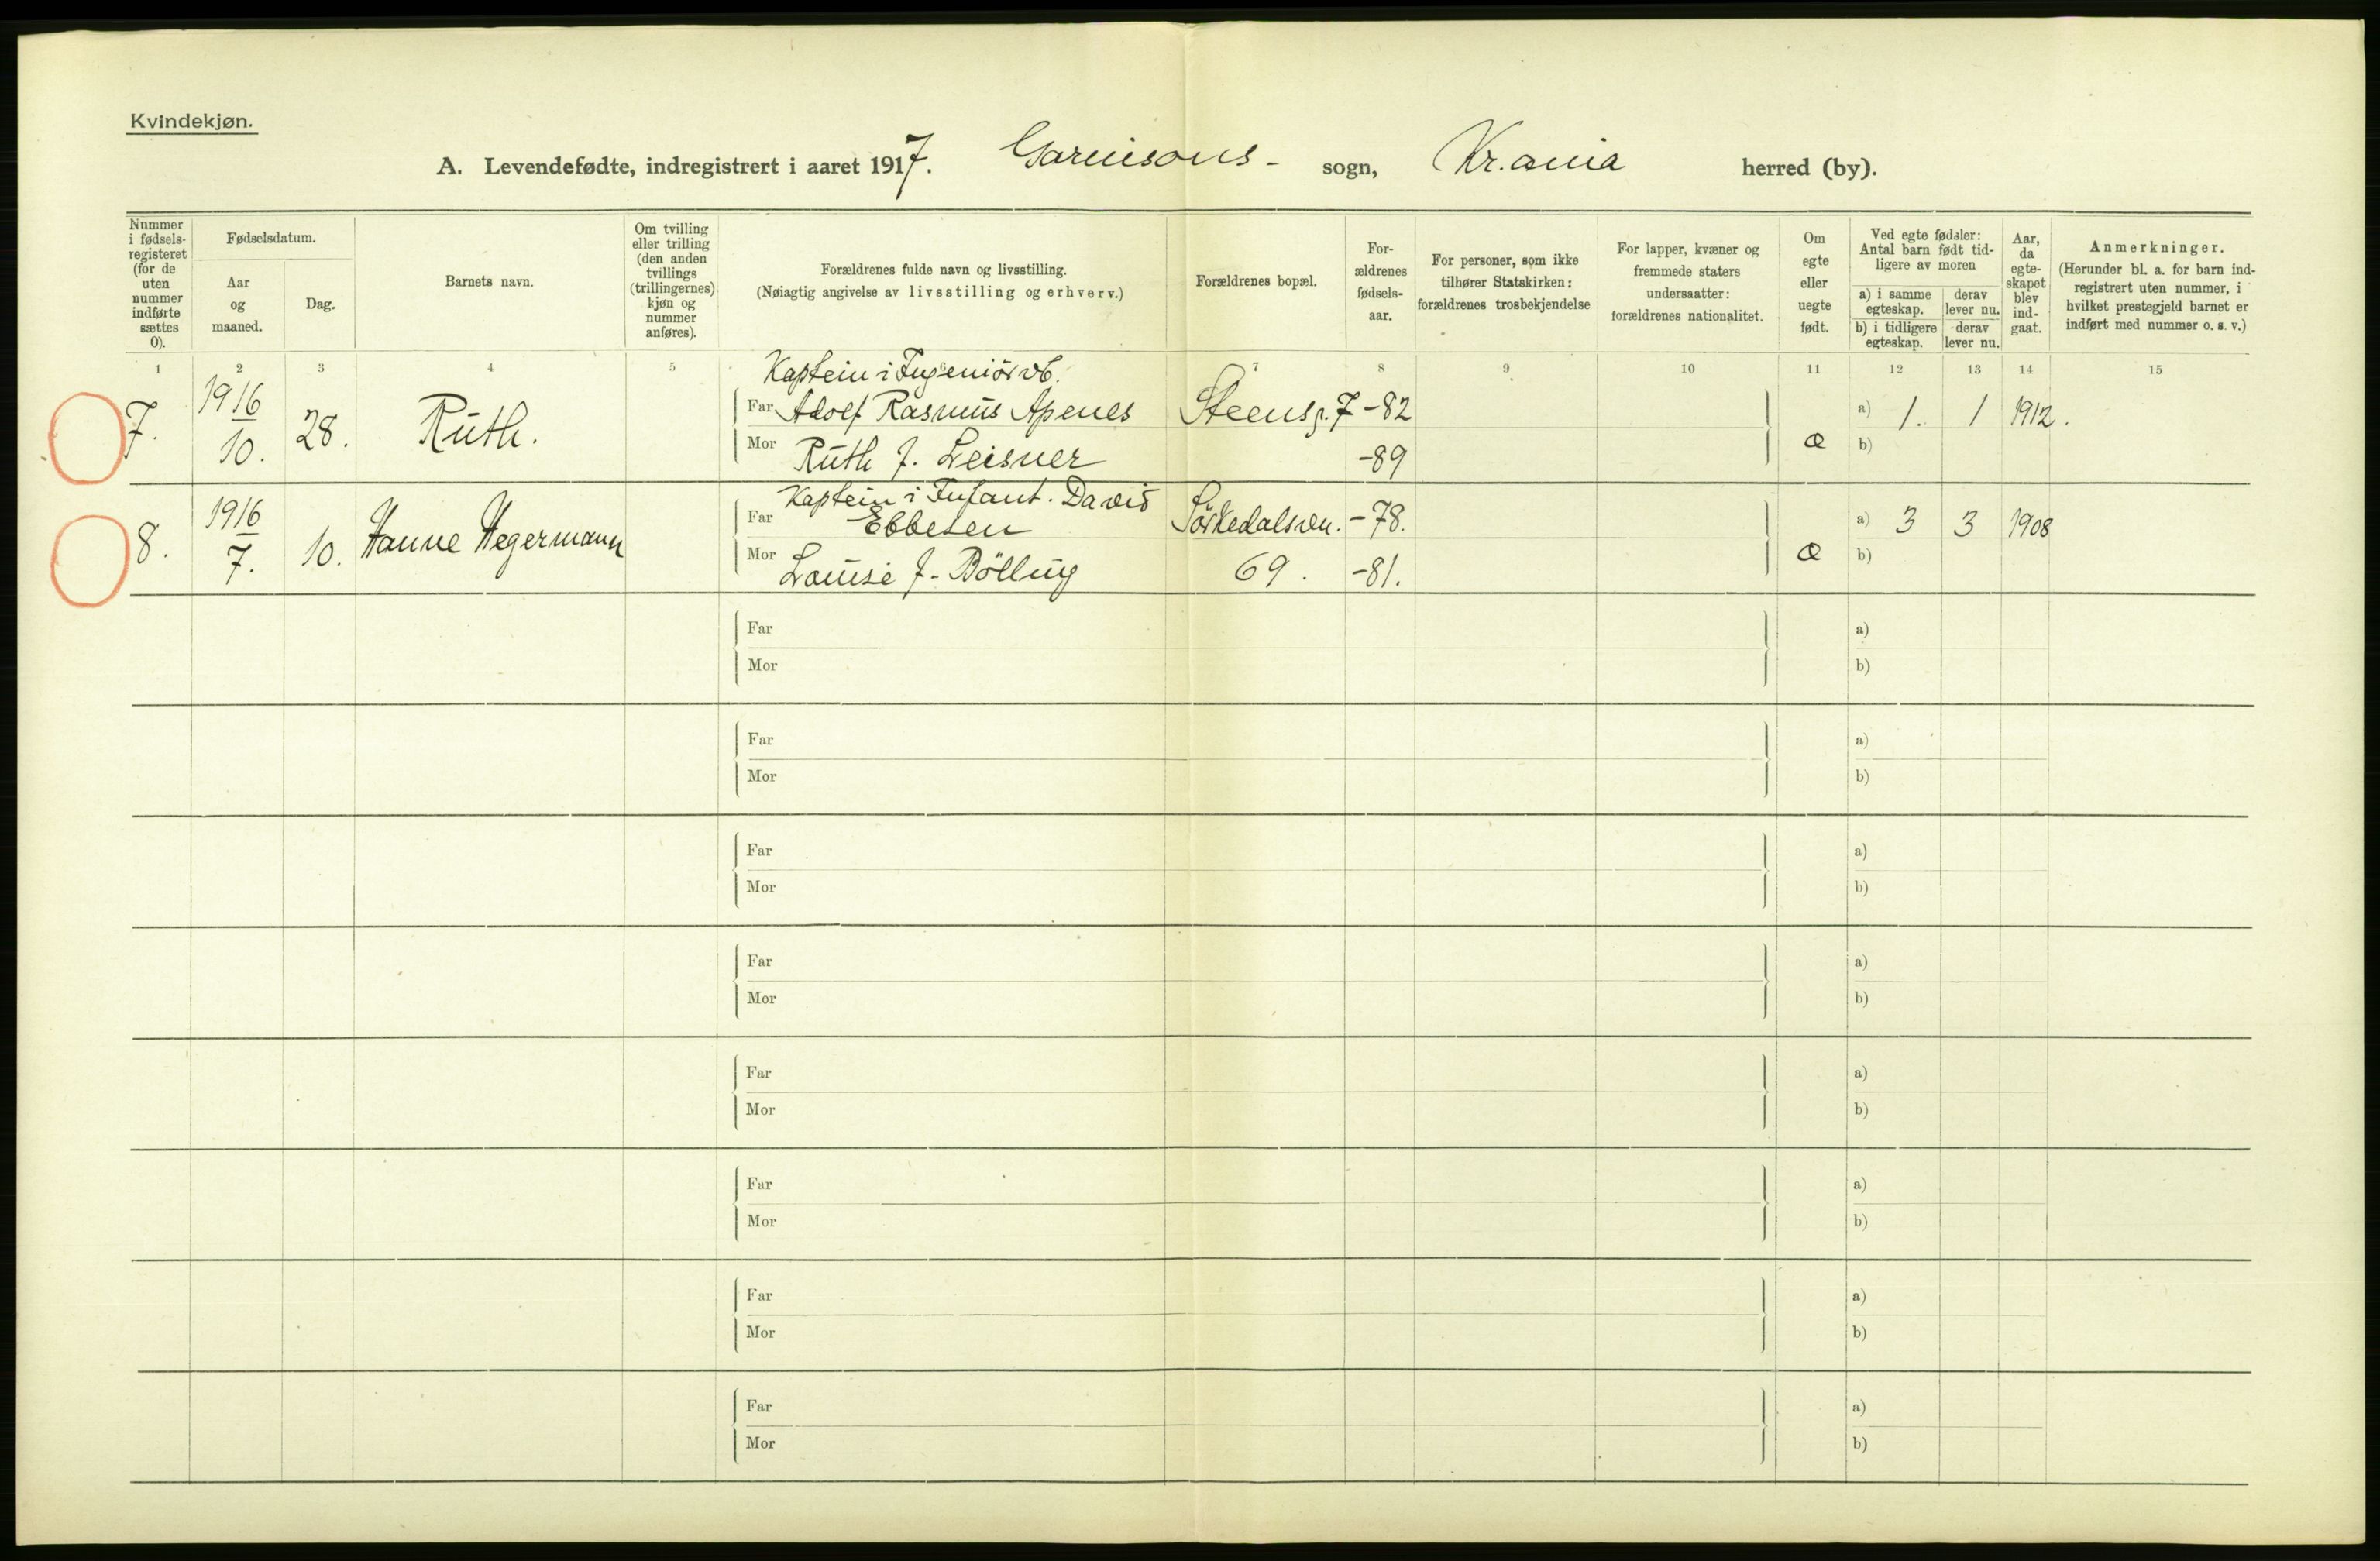 Kvindekjøn.
A. Levendefødte, indregistrert i aaret 1917. Garnisons- sogn, Kr.ania herred (by).
Nummer i fødsels-registeret (for de uten nummer indførte sættes 0).
Fødselsdatum.
Aar og maaned.
Dag.
Barnets navn.
Om tvilling eller trilling (den anden tvillings (trillingernes) kjøn og nummer anføres).
Forældrenes fulde navn og livsstilling.
(Nøiagtig angivelse av livsstilling og erhverv.)
Forældrenes bopæl.
For-ældrenes fødsels-aar.
For personer, som ikke tilhører Statskirken: forældrenes trosbekjendelse
For lapper, kvæner og fremmede staters undersaatter: forældrenes nationalitet.
Om egte eller uegte født.
Ved egte fødsler: Antal barn født tid-ligere av moren
a) i samme egteskap.
derav lever nu.
b) i tidligere egteskap.
derav lever nu.
Aar, da egte-skapet blev ind-gaat.
Anmerkninger.
(Herunder bl. a. for barn ind-registrert uten nummer, i hvilket prestegjeld barnet er indført med nummer o. s. v.)
1 2 3 4 5 7 8 9 10 11 12 13 14 15
Kaptein i Ingeniörvb.
7. 1916 28. Ruth. Far Adolf Rasmus Apenes Steensg. 7 -82 a) 1. 1 1912.
10. Mor Ruth f. Leisner -89 æ b)
Kaptein i Infant. David
8. 1916 10. Hanne Hegermann Far Ebbesen Sörkedalsven. -78. a) 3 3 1908
7. Mor Louise f. Bölling 69. -81. æ b)
Far a)
Mor b)
Far a)
Mor b)
Far a)
Mor b)
Far a)
Mor b)
Far a)
Mor b)
Far a)
Mor b)
Far a)
Mor b)
Far a)
Mor b)